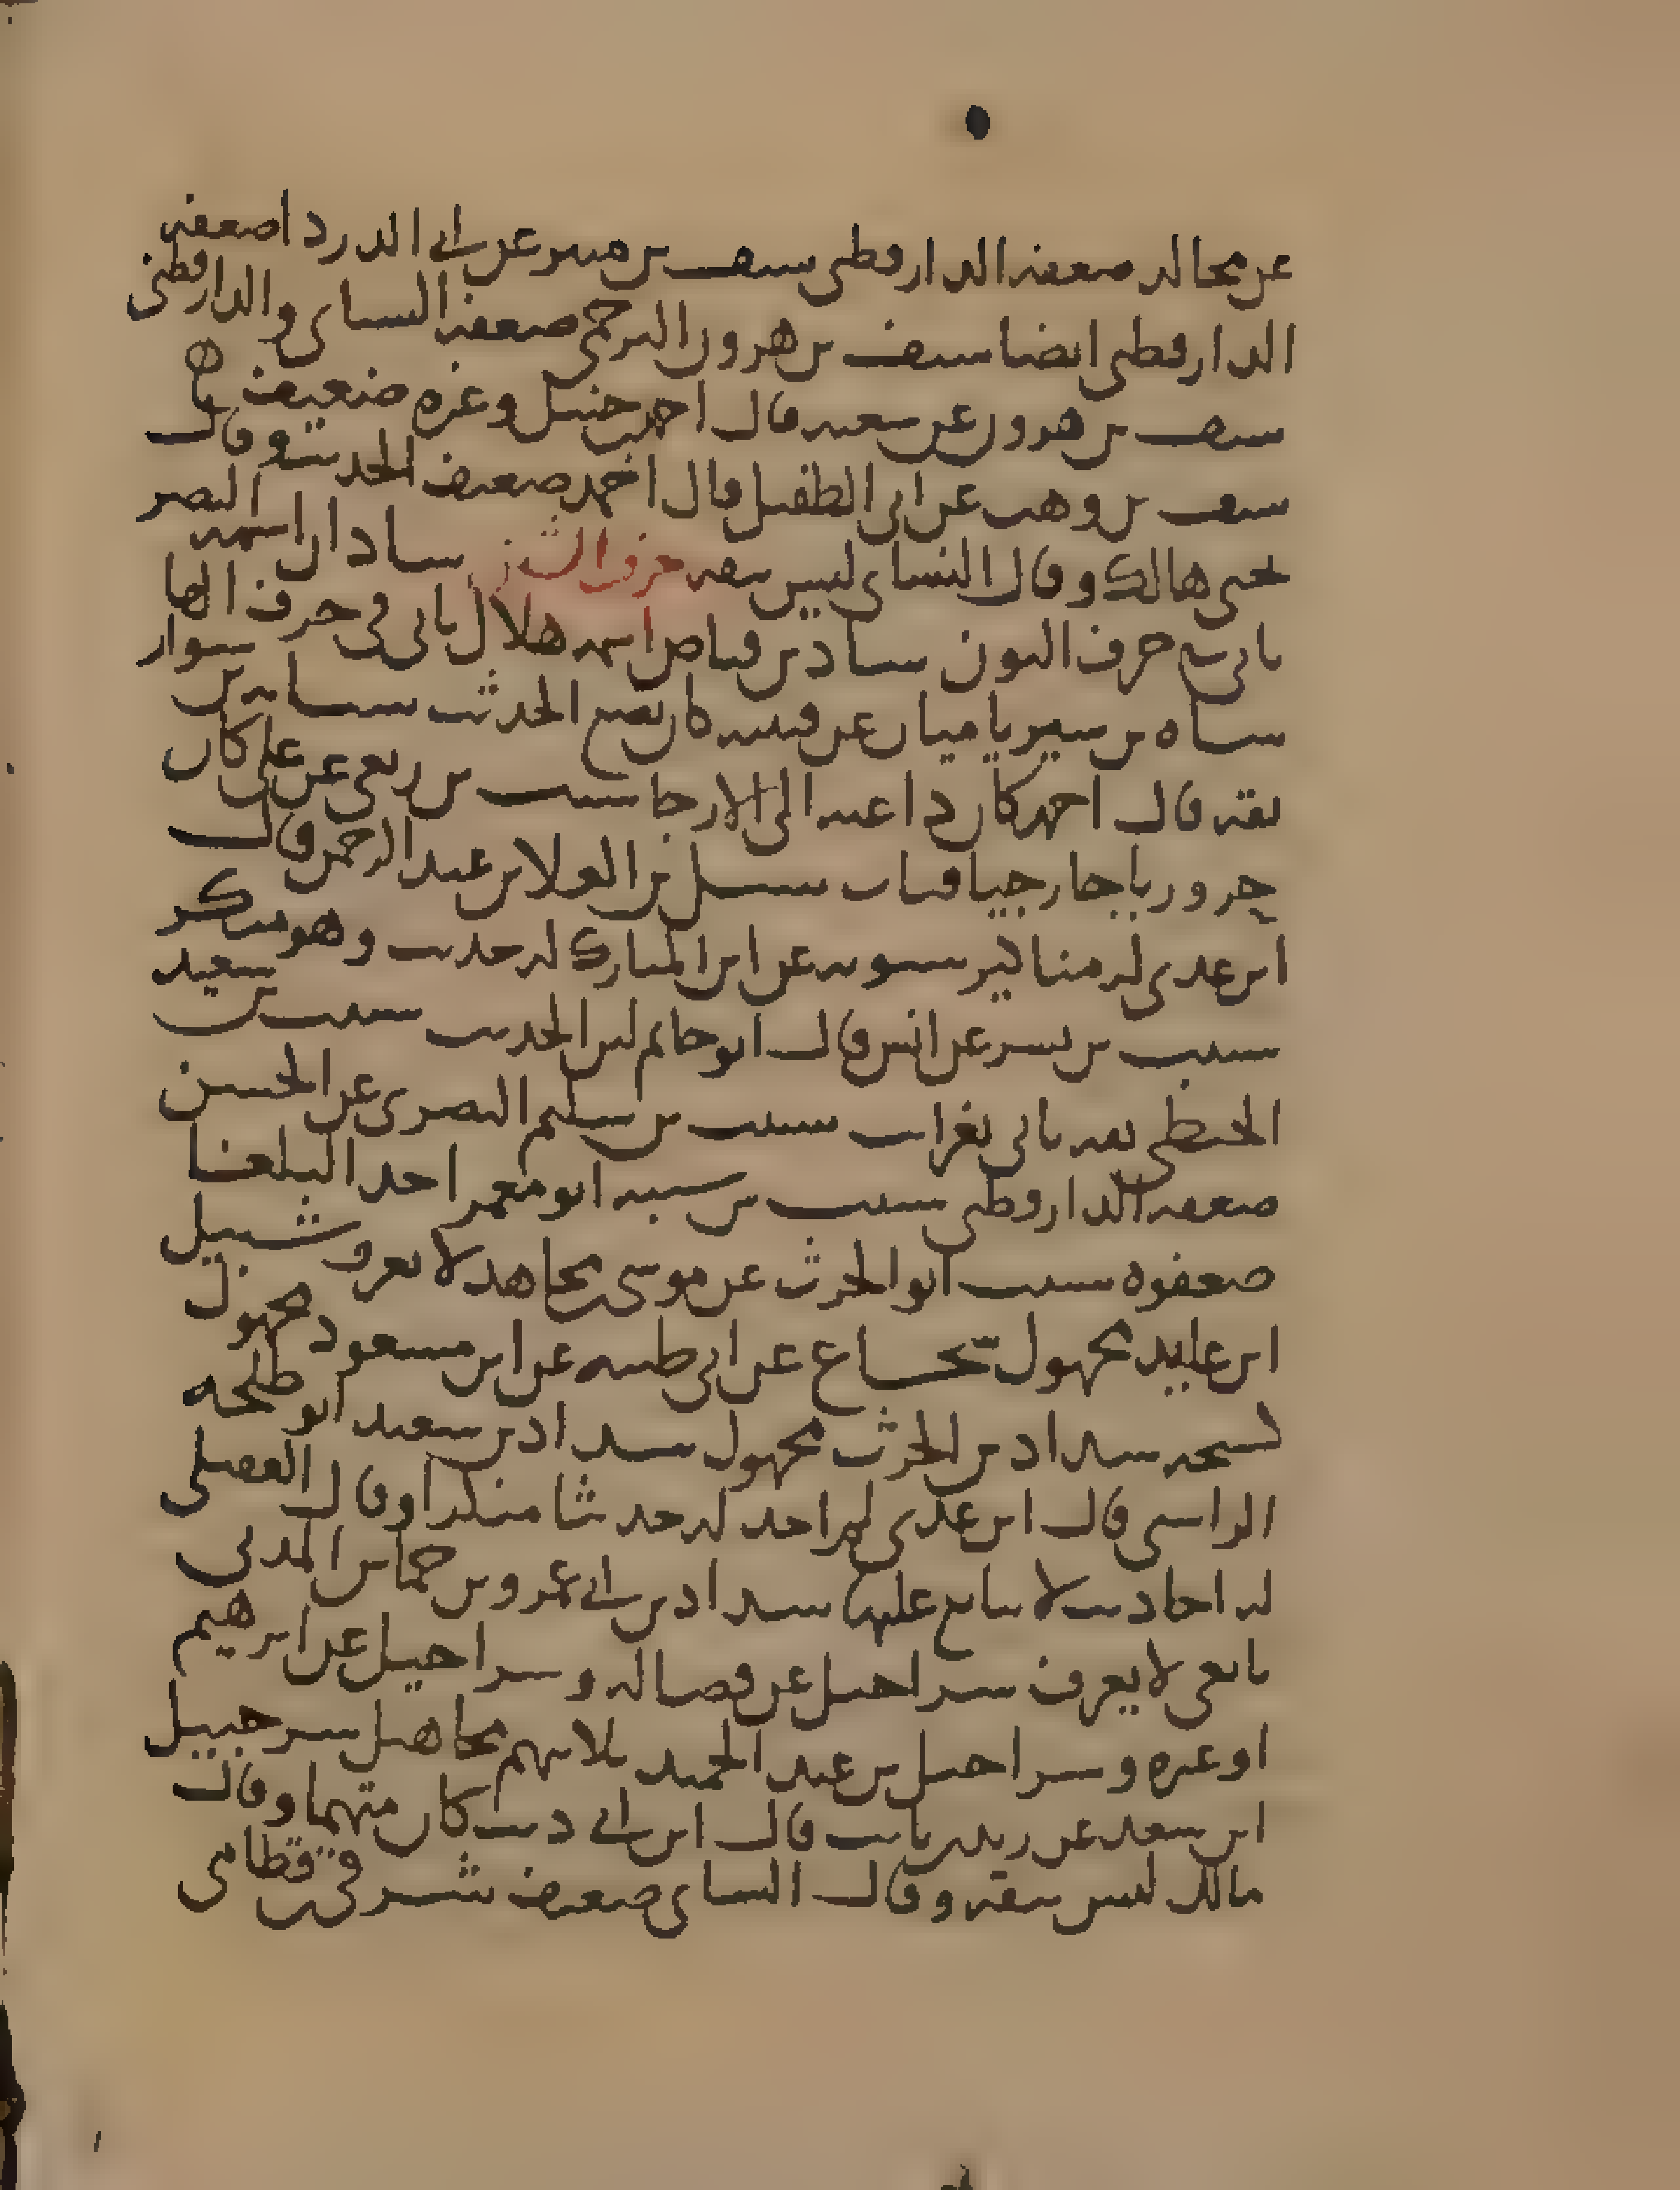 عن مجالد ضعفه الدارقطني سيف بن منير عن أبي الدردا ضعفه
الدارقطني ايضا سيف بن هرون البرجمي ضعفه النسائي والدارقطني
سيف بن هرون عن شعبه قال احمد بن حنبل وغيره ضعيف
سيف بن وهب عن ابي الطفيل قال احمد ضعيف الحديث وقال
يحيى هالك وقال النسائي ليس بثقه حرف الشين شاذان اسمه النضر
ياتي في حرف النون شاذ بن فياض اسمه هلال ياتي في حرف الها
شاه بن شير باميان عن قتيبه كان يضع الحديث شبابه بن سوار
ثقه قال احمد كان داعيه الى الارجا شبث بن ربعي عن علي كان
حروريا خارجيا فتاب شبل بن العلا بن عبد الرحمن قال
ابن عدي له مناكير شبويه عن ابن المبارك له حديث وهو منكر
شبيب بن بشر عن انس قال ابو حاتم لين الحديث شبيب بن سعيد
الحبطي ثقه ياتي بغرايب شبيب بن سليم البصري عن الحسن
ضعفه الدارقطني شبيب بن شيبه ابو معمر احد البلغا
ضعفوه شبيب ابو الحرث عن موسى بن مجاهد لا يعرف وشبيل
ابن عايد مجهول شجاع عن ابي طيبه عن ابن مسعود مجهول
كشيخه شداد بن الحرث مجهول شداد بن سعيد ابو طلحه
الراسبي قال ابن عدي لم ار احد له حديثا منكرا وقال العقيلي
له احاديث لا يتابع عليها شداد بن أبي عمرو بن حماس المدني
تابعي لا يعرف شراحيل عن فضاله وشراحيل عن ابرهيم
او غيره وشراحيل بن عبد الحميد ثلاثتهم مجاهيل شرحبيل
ابن سعد عن زيد بن ثابت قال ابن أبي ذيب كان متهما وقال
مالك ليس بثقه وقال النسائي ضعيف شرقي بن قطامي